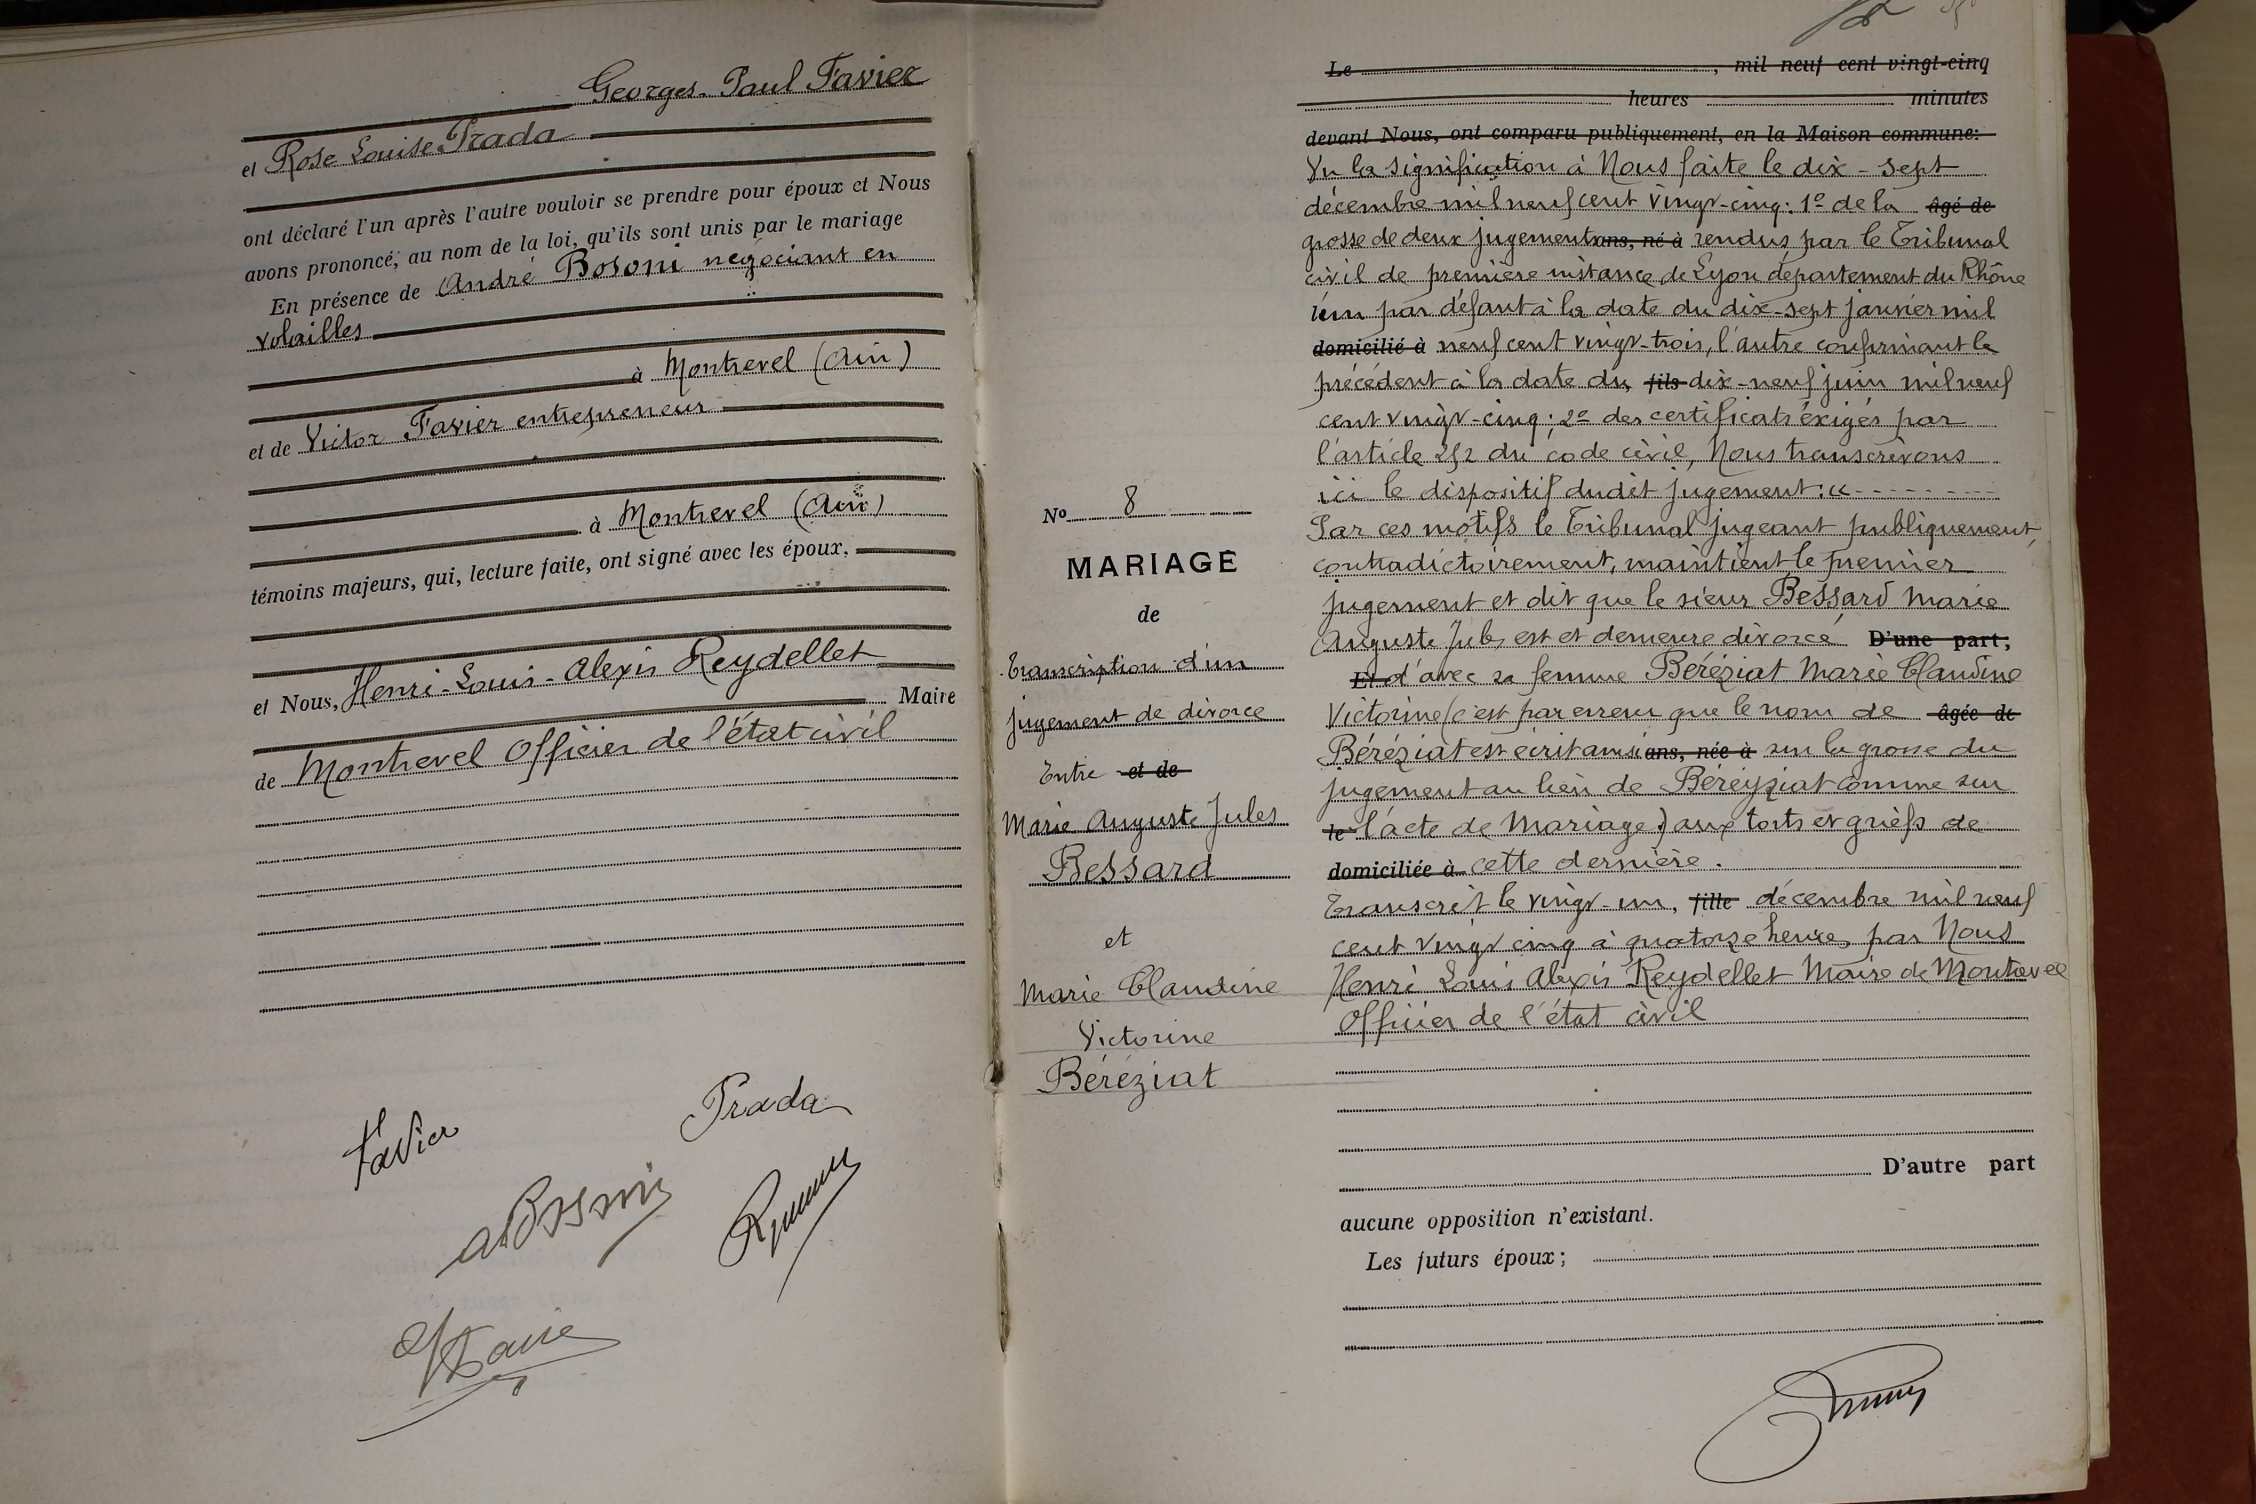 Georges-Paul Favier
et Rose Louise Prada
ont déclaré l'un après l'autre vouloir se prendre pour époux et Nous
avons prononcé, au nom de la loi, qu'ils sont unis par le mariage
En présence de André Bosoni négociant en
volailles
à Montrevel (Ain)
et de Victor Favier entrepreneur
à Montrevel (Ain)
témoins majeurs, qui, lecture faite, ont signé avec les époux,
et Nous, Henri-Louis-Alexis Reydellet
Maire
de Montrevel Officier de l'état civil
Favier
Prada
A Bosoni
Le , mil neuf cent vingt-cinq
heures minutes
devant Nous, ont comparu publiquement, en la Maison commune:
Vu la signification à Nous faite le dix-sept
décembre mil neuf cent vingt-cinq: 1º de la âgé de
grosse de deux jugements ans, né à rendus par le Tribunal
civil de première instance de Lyon département du Rhône
l'un par défaut à la date du dix-sept janvier mil
domicilié à neuf cent vingt-trois, l'autre confirmant le
précédent à la date du fils dix-neuf juin mil neuf
cent vingt-cinq; 2º des certificats éxigés par
l'article 252 du code civil, Nous transcrivons
ici le dispositif dudit jugement: «
Par ces motifs le Tribunal jugeant publiquement,
contradictoirement, maintient le premier
jugement et dit que le sieur Bessard Marie
Auguste Jules est et demeure divorcé D'une part;
Et d'avec sa femme Béréziat Marie Claudine
Victorine (c'est par erreur que le nom de âgée de
Béréziat est écrit ainsi ans, née à sur la grosse du
jugement au lieu de Béreyziat comme sur
le l'acte de Mariage) aux torts et griefs de
domiciliée à cette dernière.
Transcrit le vingt-un, fille décembre mil neuf
cent vingt cinq à quatorze heures, par Nous
Henri Louis Alexis Reydellet Maire de Montrevel
Officier de l'état civil
D'autre part
aucune opposition n'existant.
Les futurs époux;
Nº 8
MARIAGE
de
Transcription d'un
jugement de divorce
Entre et de
Marie Auguste Jules
Bessard
et
Marie Claudine
Victorine
Béréziat